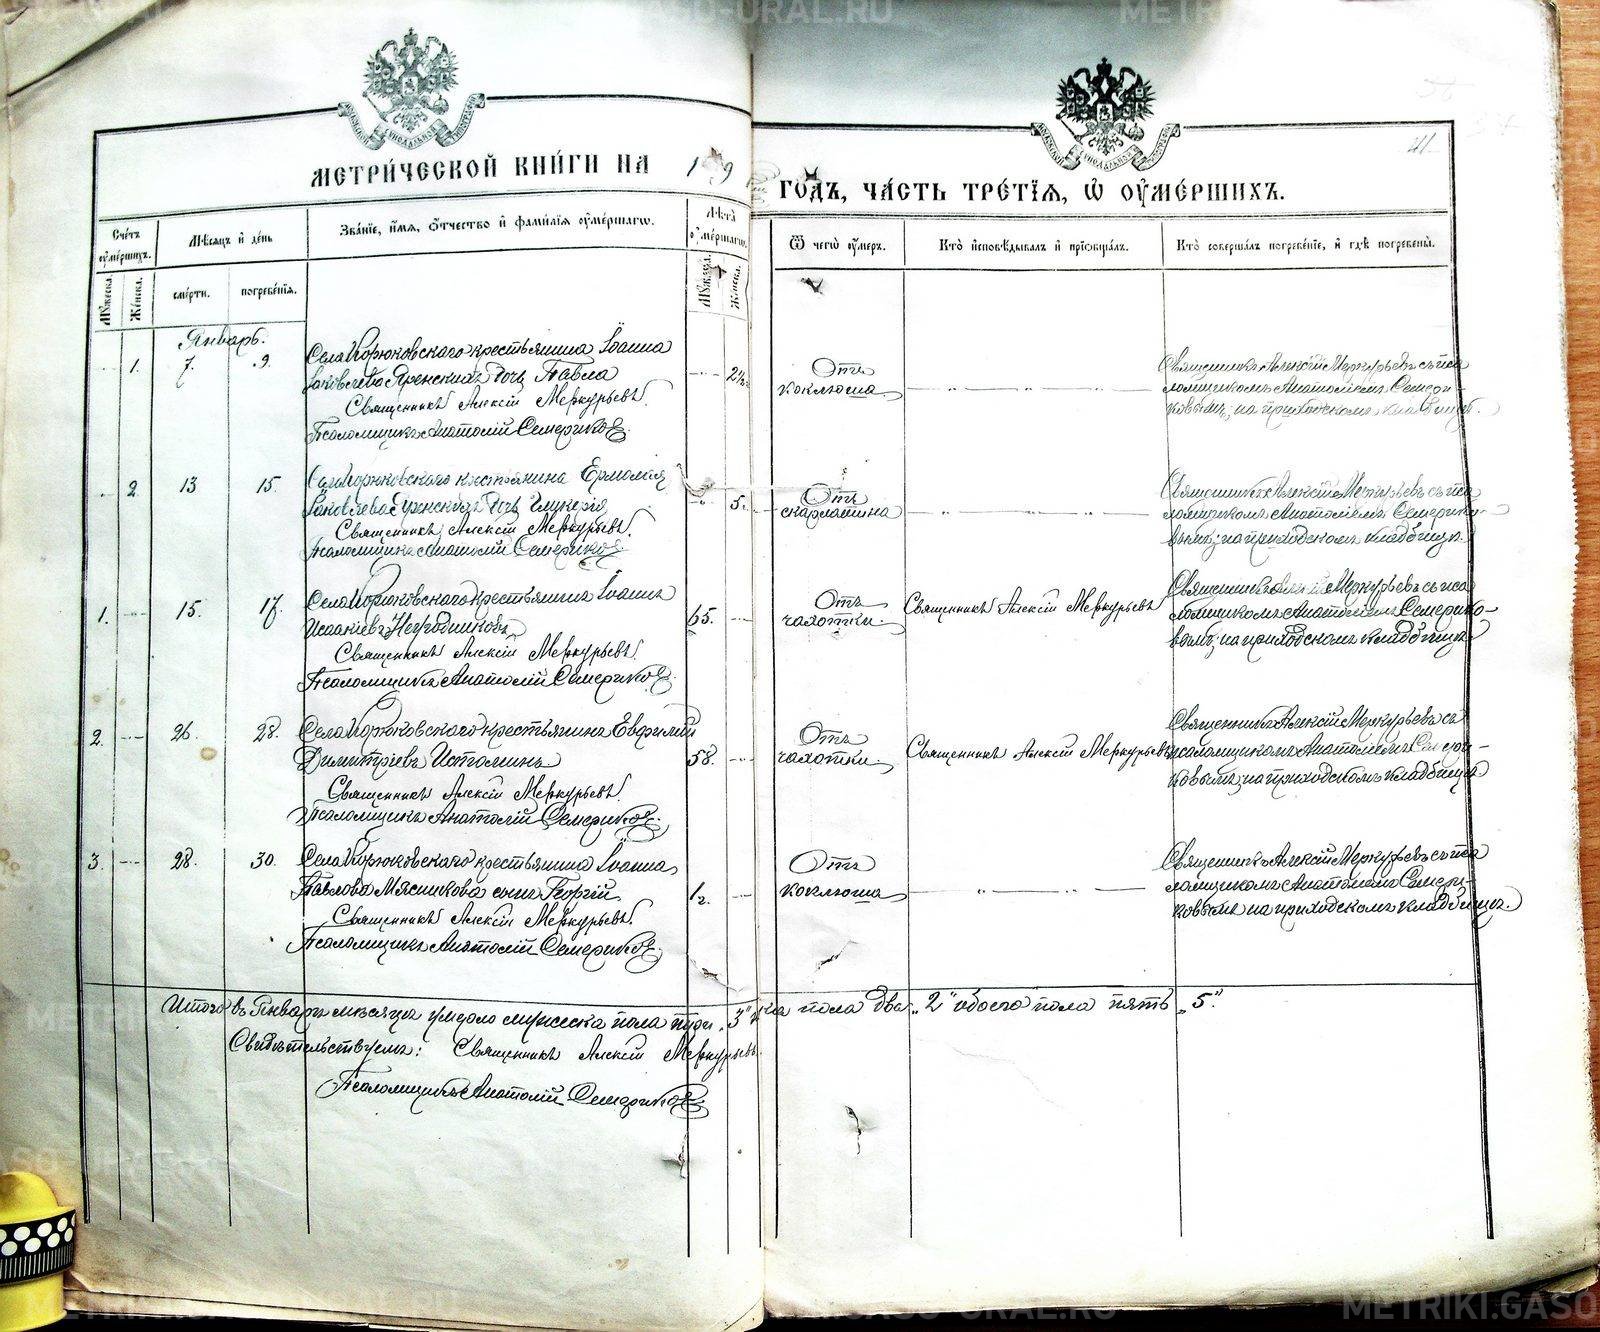 МЕТРИ́ЧЕСКОЙ КНИ́ГИ НА 1 9 ГО́ДЪ, ЧА́СТЬ ТРЕ́ТІЯ, Ѡ ОУ҆МЕ́РШИХЪ.
41.
Сче́тъ оу҆ме́ршихъ.
Мѣсяцъ и҆ де́нь
Зва́ніе, и҆́мя, ѻ҆́тчество и҆ фами́лія оу҆ме́ршагѡ.
Лѣта оу҆ме́ршагѡ.
Ѿ чегѡ̀ оу҆́меръ.
Кто̀ и҆сповѣ́дывалъ и҆ прїѡбща́лъ.
Кто̀ соверша́лъ погребе́ніе, и҆ гдѣ̀ погребены̀.
Мꙋ́жеска. Же́нска. сме́рти. погребе́нія. Мꙋ́жеска. Же́нска.
Январь.
1. 7. 9. Села Корюковскаго крестьянина Іоанна
Іаковлева Яренскихъ дочь Павла
Священникъ Алексій Меркурьевъ.
Псаломщикъ Анатолій Семериковъ.
Отъ
коклюша
Священникъ Алексій Меркурьевъ съ пса
ломщикомъ Анатоліемъ Семери
ковымъ, на приходскомъ кладбищѣ.
2 13 15. Села Корюковскаго крестьянина Ермолая
Іаковлева Яренскихъ дочь Гликерія
Священникъ Алексій Меркурьевъ.
Псаломщикъ Анатолій Семериковъ
5.
Отъ
скарлатина
Священникъ Алексій Меркурьевъ съ пса
ломщикомъ Анатоліемъ Семерико-
вымъ, на приходскомъ кладбищѣ.
1. 15. 17. Села Корюковскаго крестьянинъ Іоаннъ
Исаакіевъ
Священникъ Алексій Меркурьевъ.
Псаломщикъ Анатолій Семериковъ.
65.
Отъ
чахотки.
Священникъ Алексій Меркурьевъ
Священникъ Алексій Меркурьевъ съ пса
ломщикомъ Анатоліемъ Семерико-
вымъ, на приходскомъ кладбищѣ.
2. 26. 28. Села Корюковскаго крестьянинъ Евфимій
Димитріевъ Истоминъ
Священникъ Алексій Меркурьевъ.
Псаломщикъ Анатолій Семериковъ.
58.
Отъ
чахотки.
Священникъ Алексій Меркурьевъ
Священникъ Алексій Меркурьевъ съ
псаломщикомъ Анатоліемъ Семери-
ковымъ, на приходскомъ кладбищѣ
3. 28. 30. Села Корюковскаго крестьянина Іоанна
Павлова Мясникова сынъ Георгій
Священникъ Алексій Меркурьевъ.
Псаломщикъ Анатолій Семериковъ.
Отъ
коклюша
Священникъ Алексій Меркурьевъ съ пса
ломщикомъ Анатоліемъ Семери-
ковымъ на приходскомъ кладбищѣ.
Итого въ Январѣ мѣсяцѣ умерло мужеска пола три „3" пола два „2" обоего пола пять „5."
Свидѣтельствуемъ: Священникъ Алексій Меркурьевъ.
Псаломщикъ Анатолій Семериковъ
METRIKI.GASO-URAL.RU